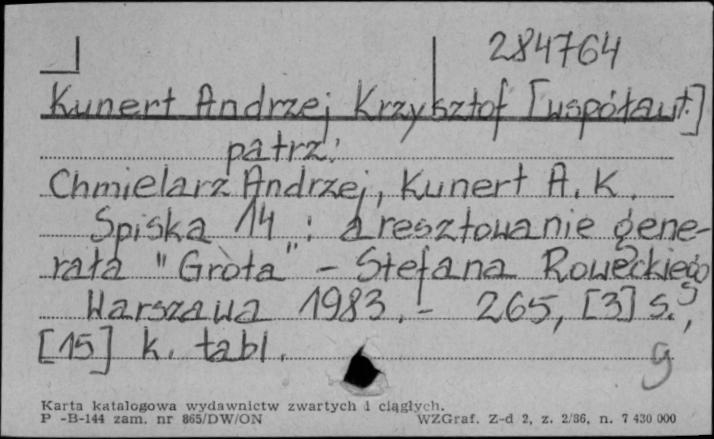 284764
Kunert Andrzej Krzysztof [współaut.]
patrz:
Chmielarz Andrzej, Kunert A. K.
Spiska 14 : aresztowanie gene-
rała "Grota" - Stefana Roweckiego
Warszawa 1983. - 265, [3] s.,
[15] k. tabl.
g
Karta katalogowa wydawnictw zwartych i ciągłych.
P -B-144 zam. nr 865/DW/ON WZGraf. Z-d 2, z. 2/86, n. 7 430 000